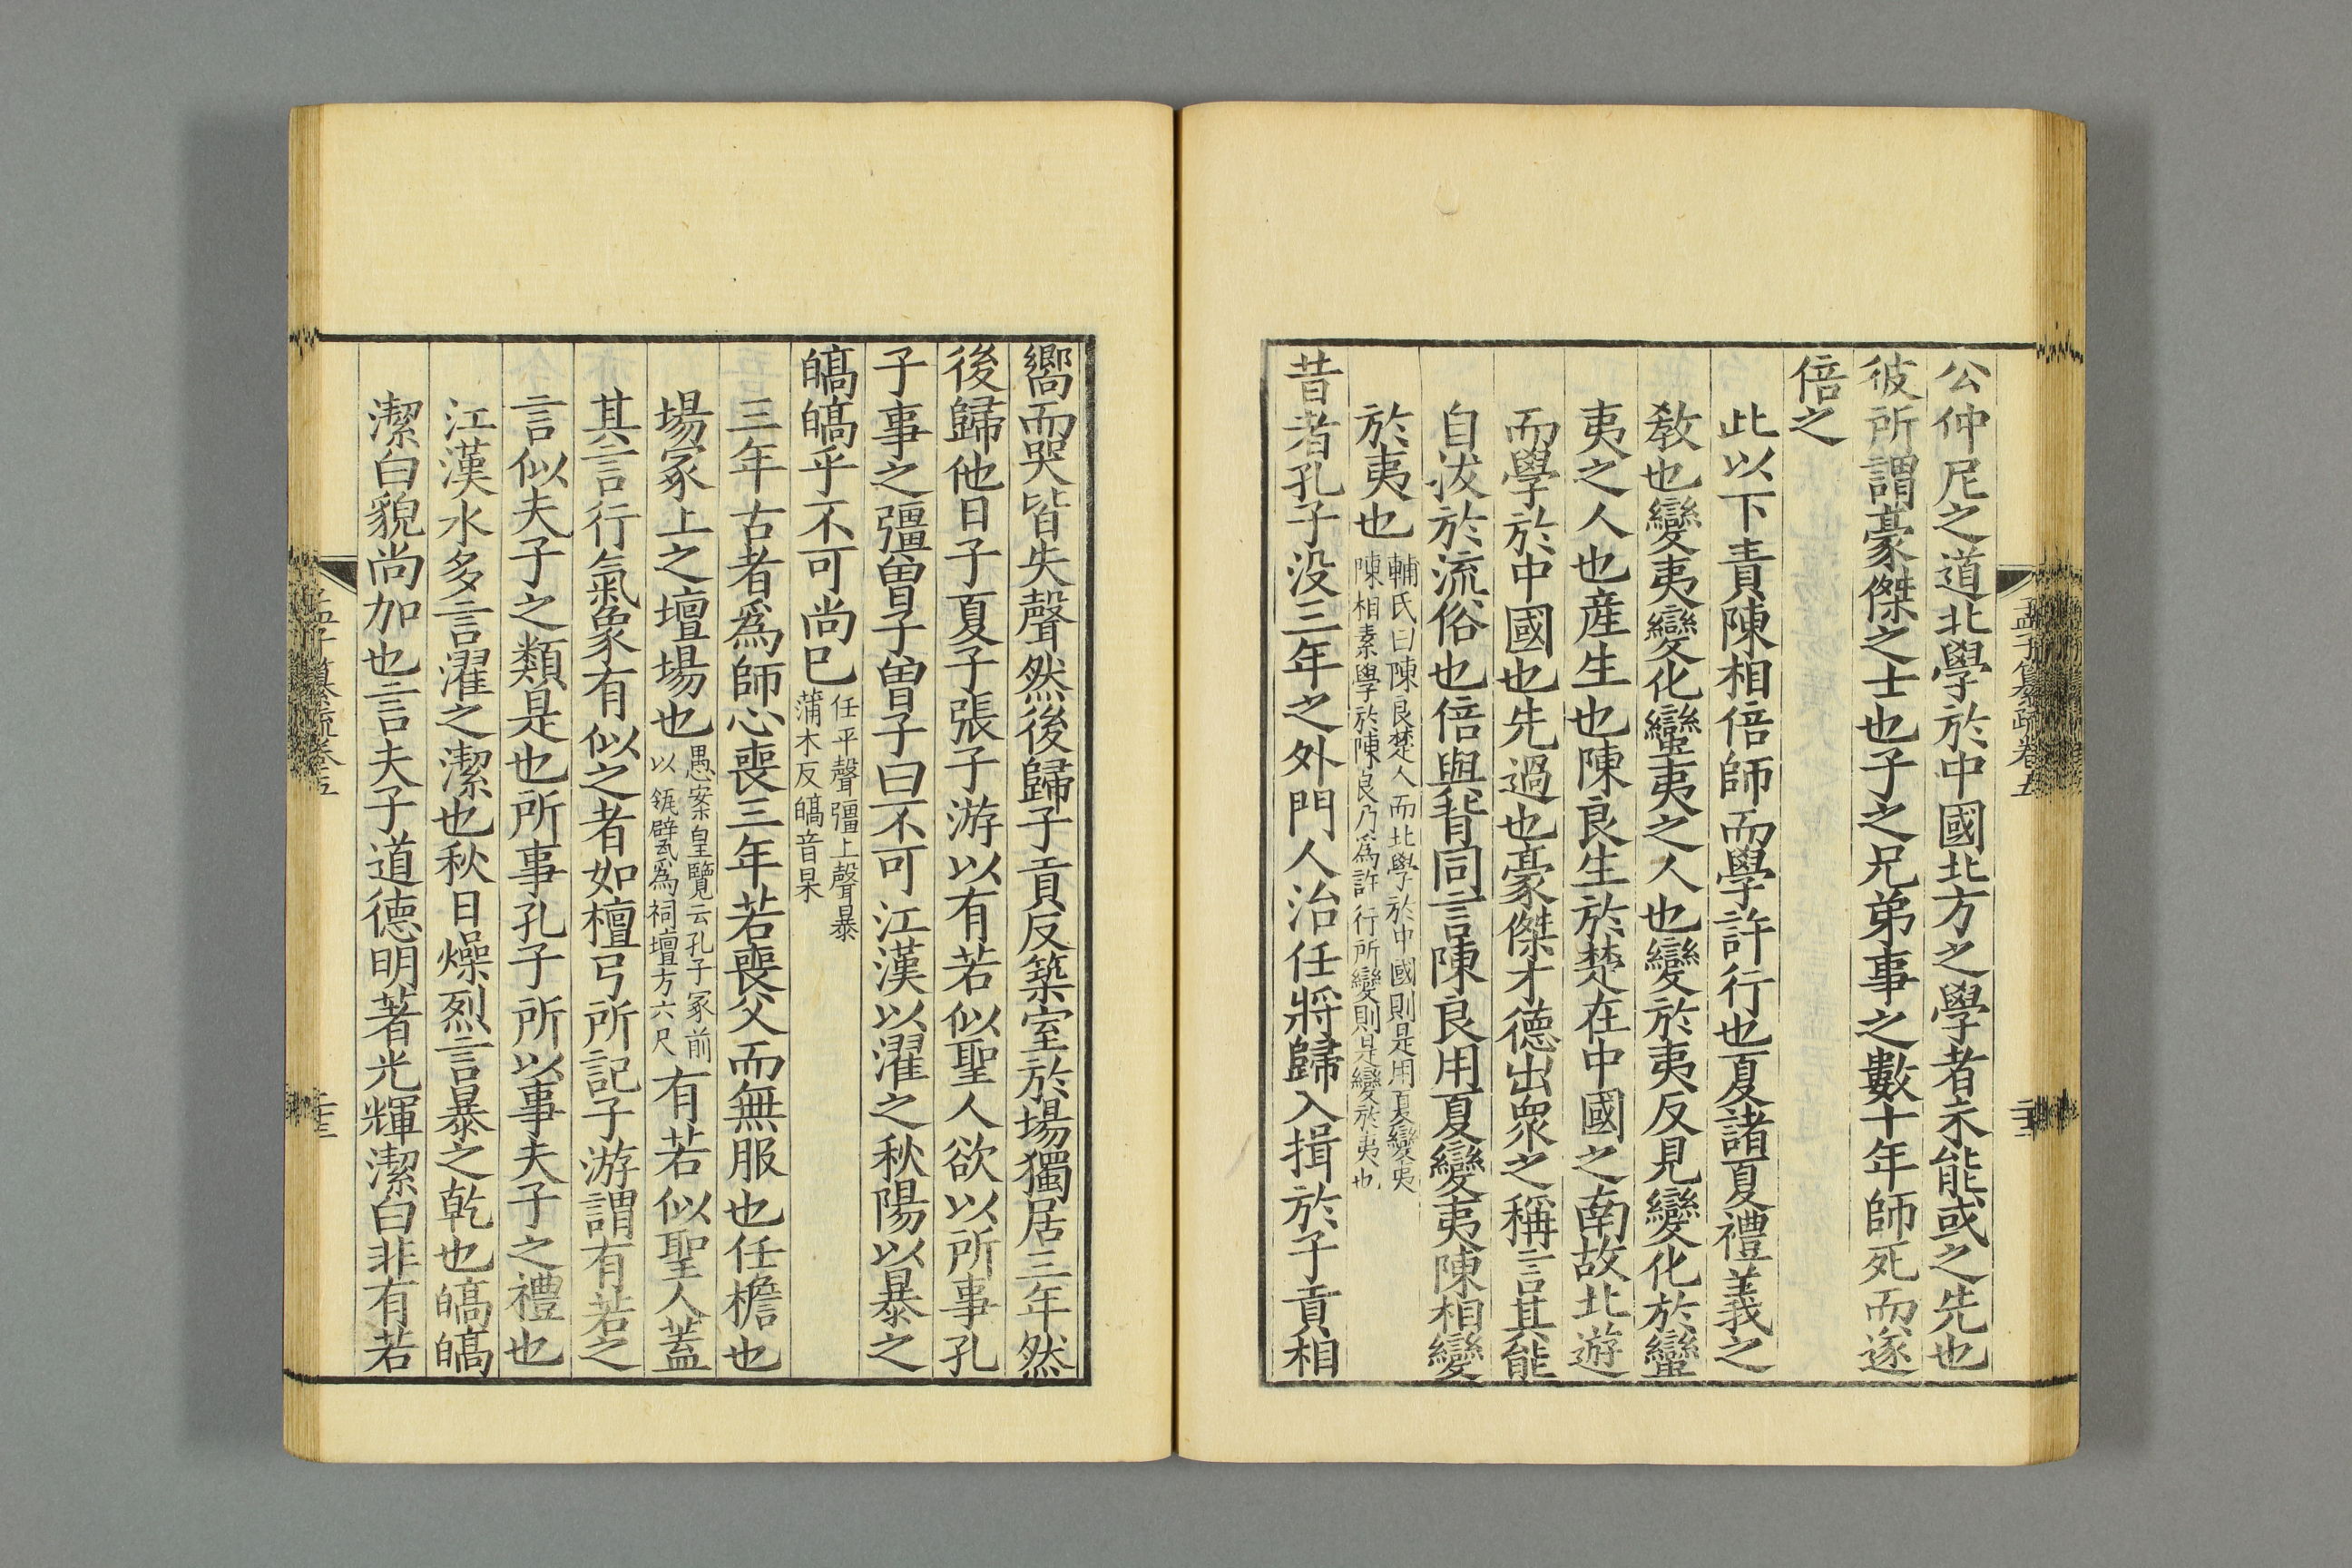 公仲尼之道北學於中國北方之學者未能或之先也
彼所謂豪傑之士也子之兄弟事之數十年師死而遂
倍之
此以下責陳相倍師而學許行也夏諸夏禮義之
教也變夷變化蠻夷之人也變於夷反見變化於蠻
夷之人也産生也陳良生於楚在中國之南故北遊
而學於中國也先過也豪傑才德出衆之稱言其能
自㧞於流俗也倍與背同言陳良用夏變夷陳相變
於夷也
輔氏曰陳良楚人而北學於中國則是用夏變夷
陳相素學於陳良乃爲許行所變則是變於夷也
昔者孔子没三年之外門人治任將歸入揖於子貢相
孟子纂疏卷五
二十二
嚮而哭皆失聲然後歸子貢反築室於場獨居三年然
後歸他日子夏子張子游以有若似聖人欲以所事孔
子事之彊曽子曽子曰不可江漢以濯之秋陽以暴之
皜皜乎不可尚已
任平聲彊上聲暴
蒲木反皜音杲
三年古者爲師心喪三年若喪父而無服也任檐也
場冢上之壇場也
愚案皇覽云孔子冢前
以瓴甓爲祠壇方六尺
有若似聖人蓋
其言行氣象有似之者如檀弓所記子游謂有若之
言似夫子之類是也所事孔子所以事夫子之禮也
江漢水多言濯之潔也秋日燥烈言暴之乾也皜皜
潔白貌尚加也言夫子道德明著光輝潔白非有若
孟子纂疏卷五
二十三